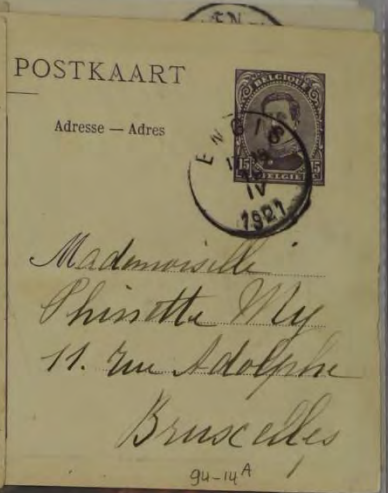 EN
POSTKAART
Adresse — Adres
BELGIQUE
15 15
BELGIË
ENGIS
IV
1921
Mademoiselle
Phinotte My
11. rue Adolphe
Bruxelles
94-14 A